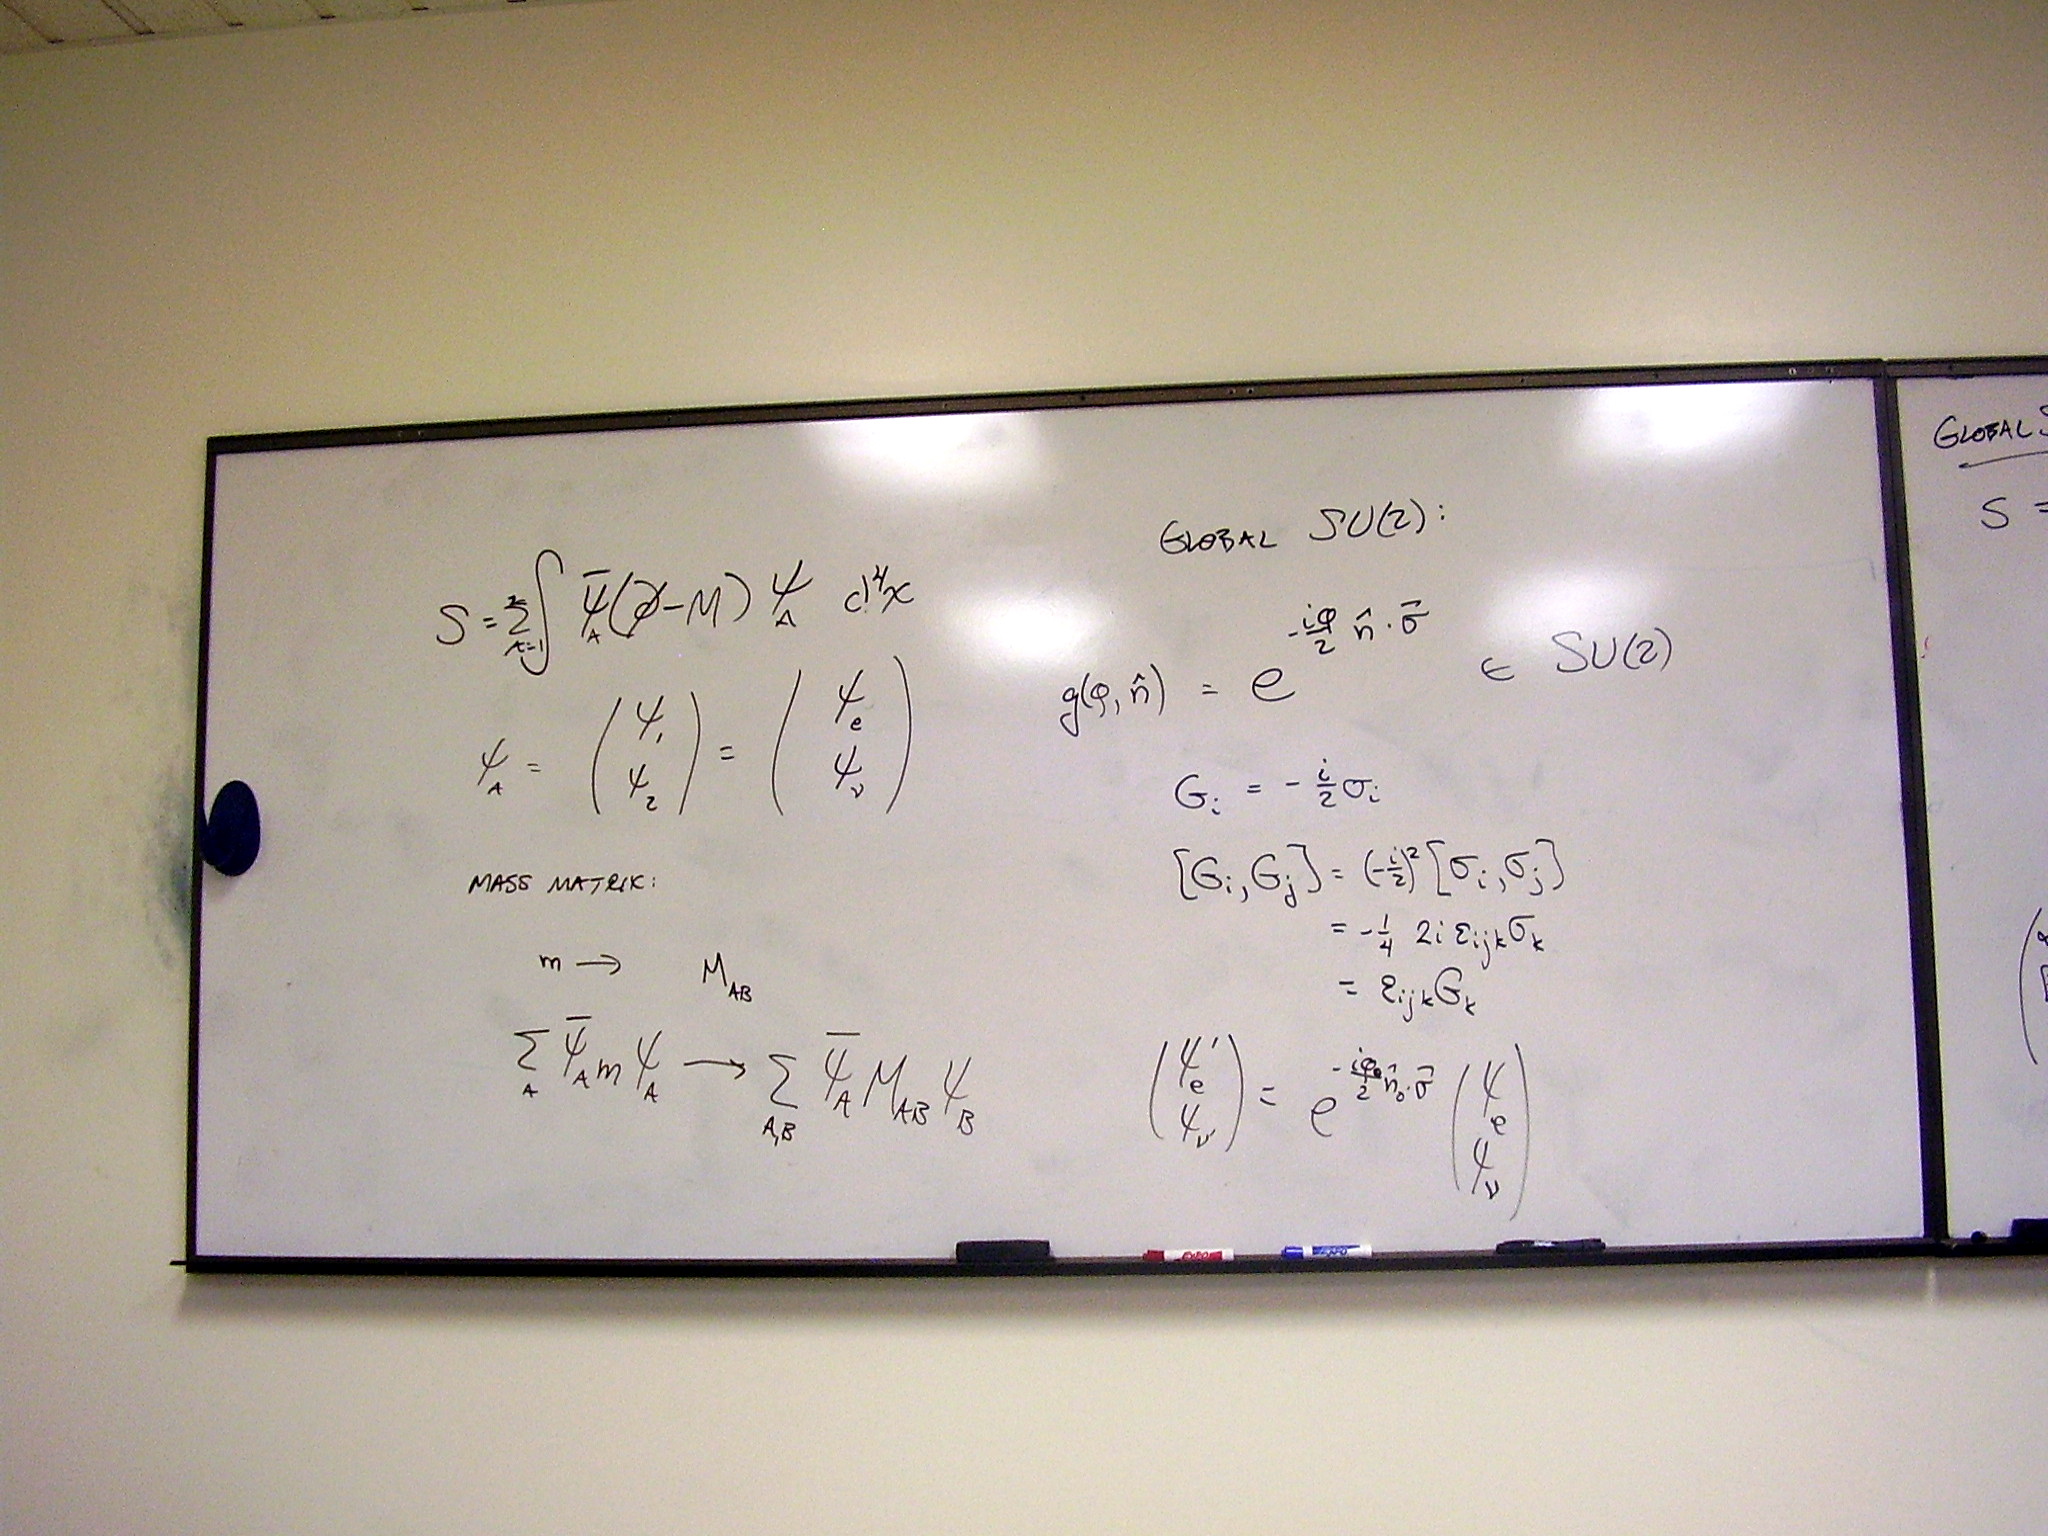 S = Σ_{A=1}^{2} ∫ ψ̄_A (∂̸ - M) ψ_A d⁴x
ψ_A = (ψ_1 ψ_2) = (ψ_e ψ_ν)
MASS MATRIX:
m → M_AB
Σ_A ψ̄_A m ψ_A → Σ_{A,B} ψ̄_A M_AB ψ_B
GLOBAL SU(2):
g(φ, n̂) = e^{-iφ/2 n̂·σ⃗} ∈ SU(2)
G_i = -i/2 σ_i
[G_i, G_j] = (-i/2)² [σ_i, σ_j]
= -1/4 2i ε_ijk σ_k
= ε_ijk G_k
(ψ_e' ψ_ν') = e^{-iφ_0/2 n̂_0·σ⃗} (ψ_e ψ_ν)
GLOBAL S
S =